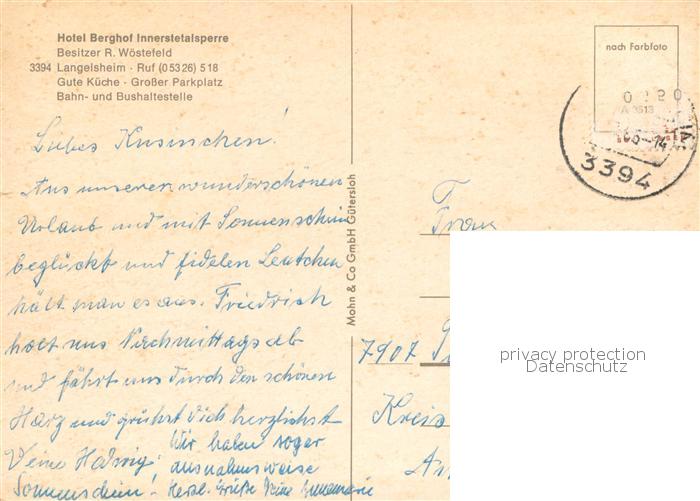 Hotel Berghof Innerstetalsperre
Besitzer R. Wöstefeld
3394 Langelsheim · Ruf (05326) 518
Gute Küche · Großer Parkplatz
Bahn- und Bushaltestelle
Liebes Kusinchen!
Aus unserem wunderschönen
Urlaub und mit Sonnenschein
beglückt und fidelen Leutchen
hält man es aus. Friedrich
holt uns Nachmittags ab
und fährt uns durch den schönen
Harz und grüßt Dich herzlichst
Deine Hedwig.
Sonnenschein!
Wir haben sogar
ausnahmsweise
Herzl. Grüße Deine Annemarie
Mohn & Co GmbH Gütersloh
nach Farbfoto
3394
Frau
7907
Kreis
privacy protection
Datenschutz